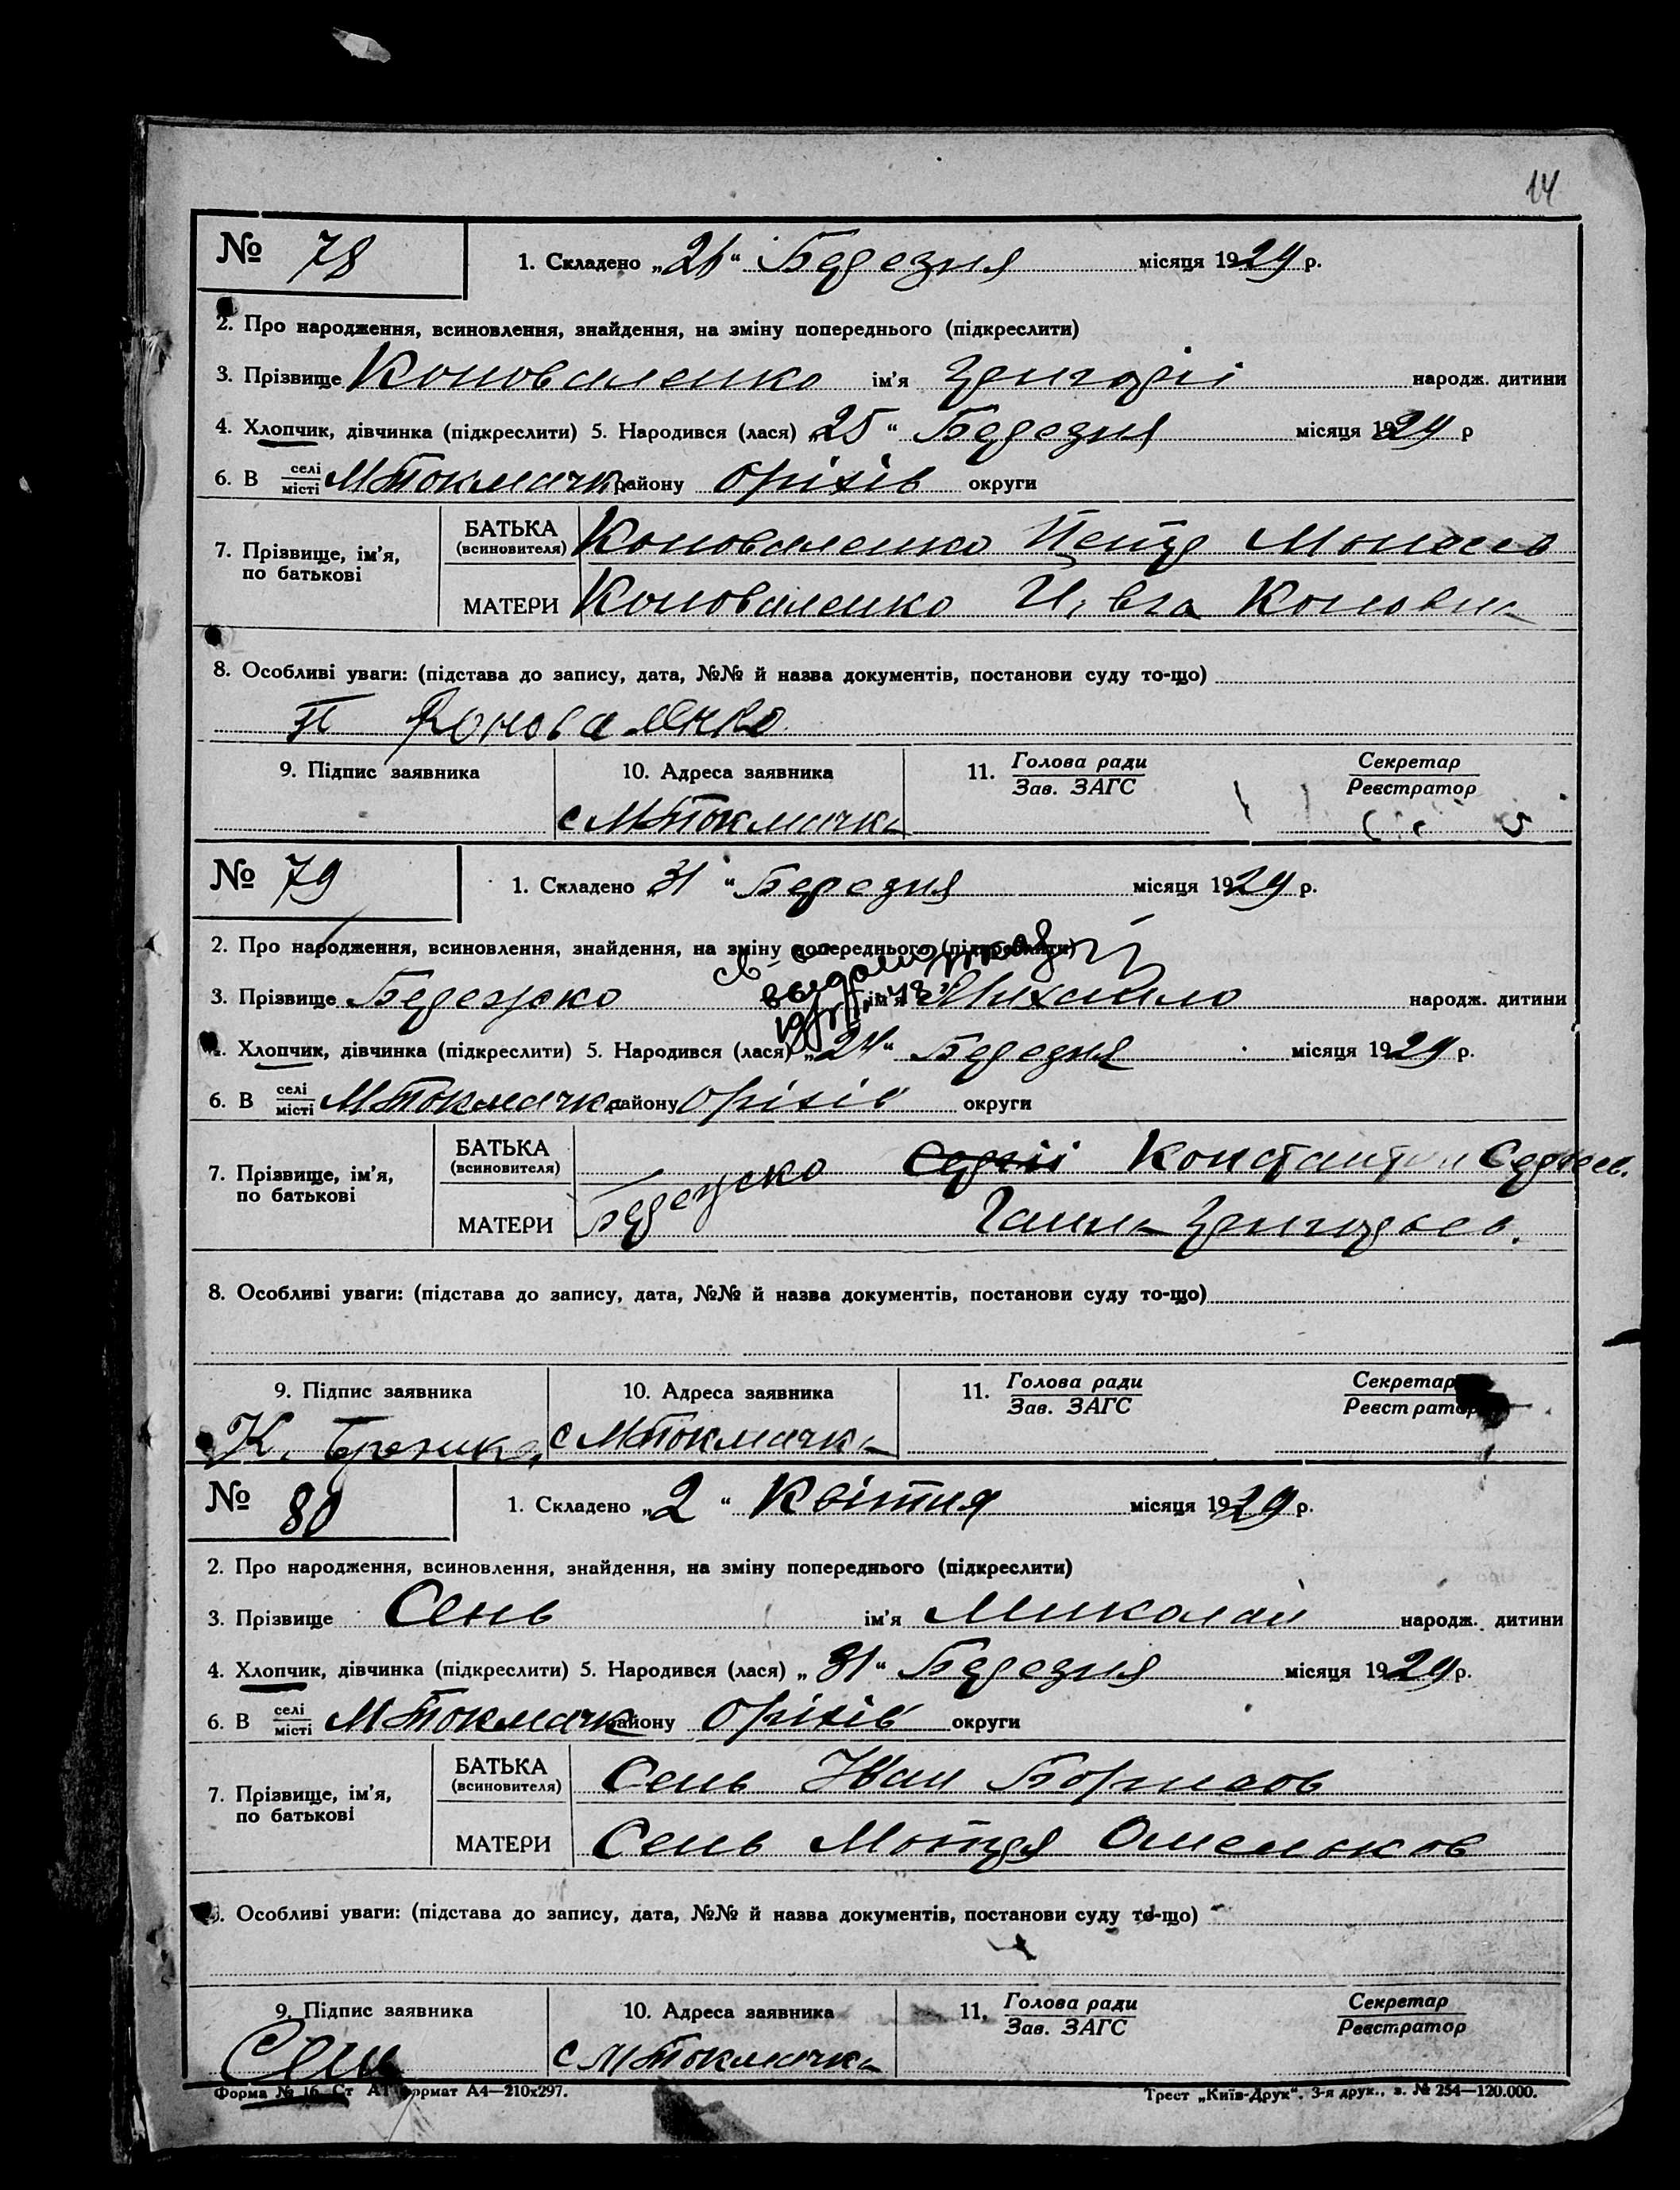 14
№ 78
1. Складено „26“ Березня місяця 1929 р.
2. Про народження, всиновлення, знайдення, на зміну попереднього (підкреслити)
3. Прізвище Коноваленко ім'я Григорій народж. дитини
4. Хлопчик, дівчинка (підкреслити) 5. Народився (лася) „25“ Березня місяця 1929 р
6. В селі/місті МТокмачка району Оріхів округи
7. Прізвище, ім'я, по батькові
БАТЬКА (всиновителя) Коноваленко Петр
МАТЕРИ Коноваленко
8. Особливі уваги: (підстава до запису, дата, №№ й назва документів, постанови суду то-що)
П Коноваленко
9. Підпис заявника 10. Адреса заявника 11. Голова ради/Зав. ЗАГС Секретар/Реєстратор
с МТокмачка
№ 79
1. Складено 31 “ Березня місяця 1929 р.
2. Про народження, всиновлення, знайдення, на зміну попереднього (підкреслити)
3. Прізвище ім'я Михайло народж. дитини
4. Хлопчик, дівчинка (підкреслити) 5. Народився (лася) „24“ Березня місяця 1929 р.
6. В селі/місті МТокмачка району Оріхів округи
7. Прізвище, ім'я, по батькові
БАТЬКА (всиновителя) Сергій Константин Сергеев.
МАТЕРИ Ганна Григорьев.
8. Особливі уваги: (підстава до запису, дата, №№ й назва документів, постанови суду то-що)
9. Підпис заявника 10. Адреса заявника 11. Голова ради/Зав. ЗАГС Секретар/Реєстратор
К. с МТокмачка
№ 80
1. Складено „2“ Квітня місяця 1929 р.
2. Про народження, всиновлення, знайдення, на зміну попереднього (підкреслити)
3. Прізвище Сень ім'я Миколай народж. дитини
4. Хлопчик, дівчинка (підкреслити) 5. Народився (лася) „31“ Березня місяця 1929 р.
6. В селі/місті МТокмачка району Оріхів округи
7. Прізвище, ім'я, по батькові
БАТЬКА (всиновителя) Сень Иван Борисов
МАТЕРИ Сень Мотря Омельков
8. Особливі уваги: (підстава до запису, дата, №№ й назва документів, постанови суду то-що)
9. Підпис заявника 10. Адреса заявника 11. Голова ради/Зав. ЗАГС Секретар/Реєстратор
Сень с МТокмачка
Форма № 16 Ст А1 Формат А4—210х297. Трест „Київ-Друк“. 3-я друк., з. № 254—120.000.